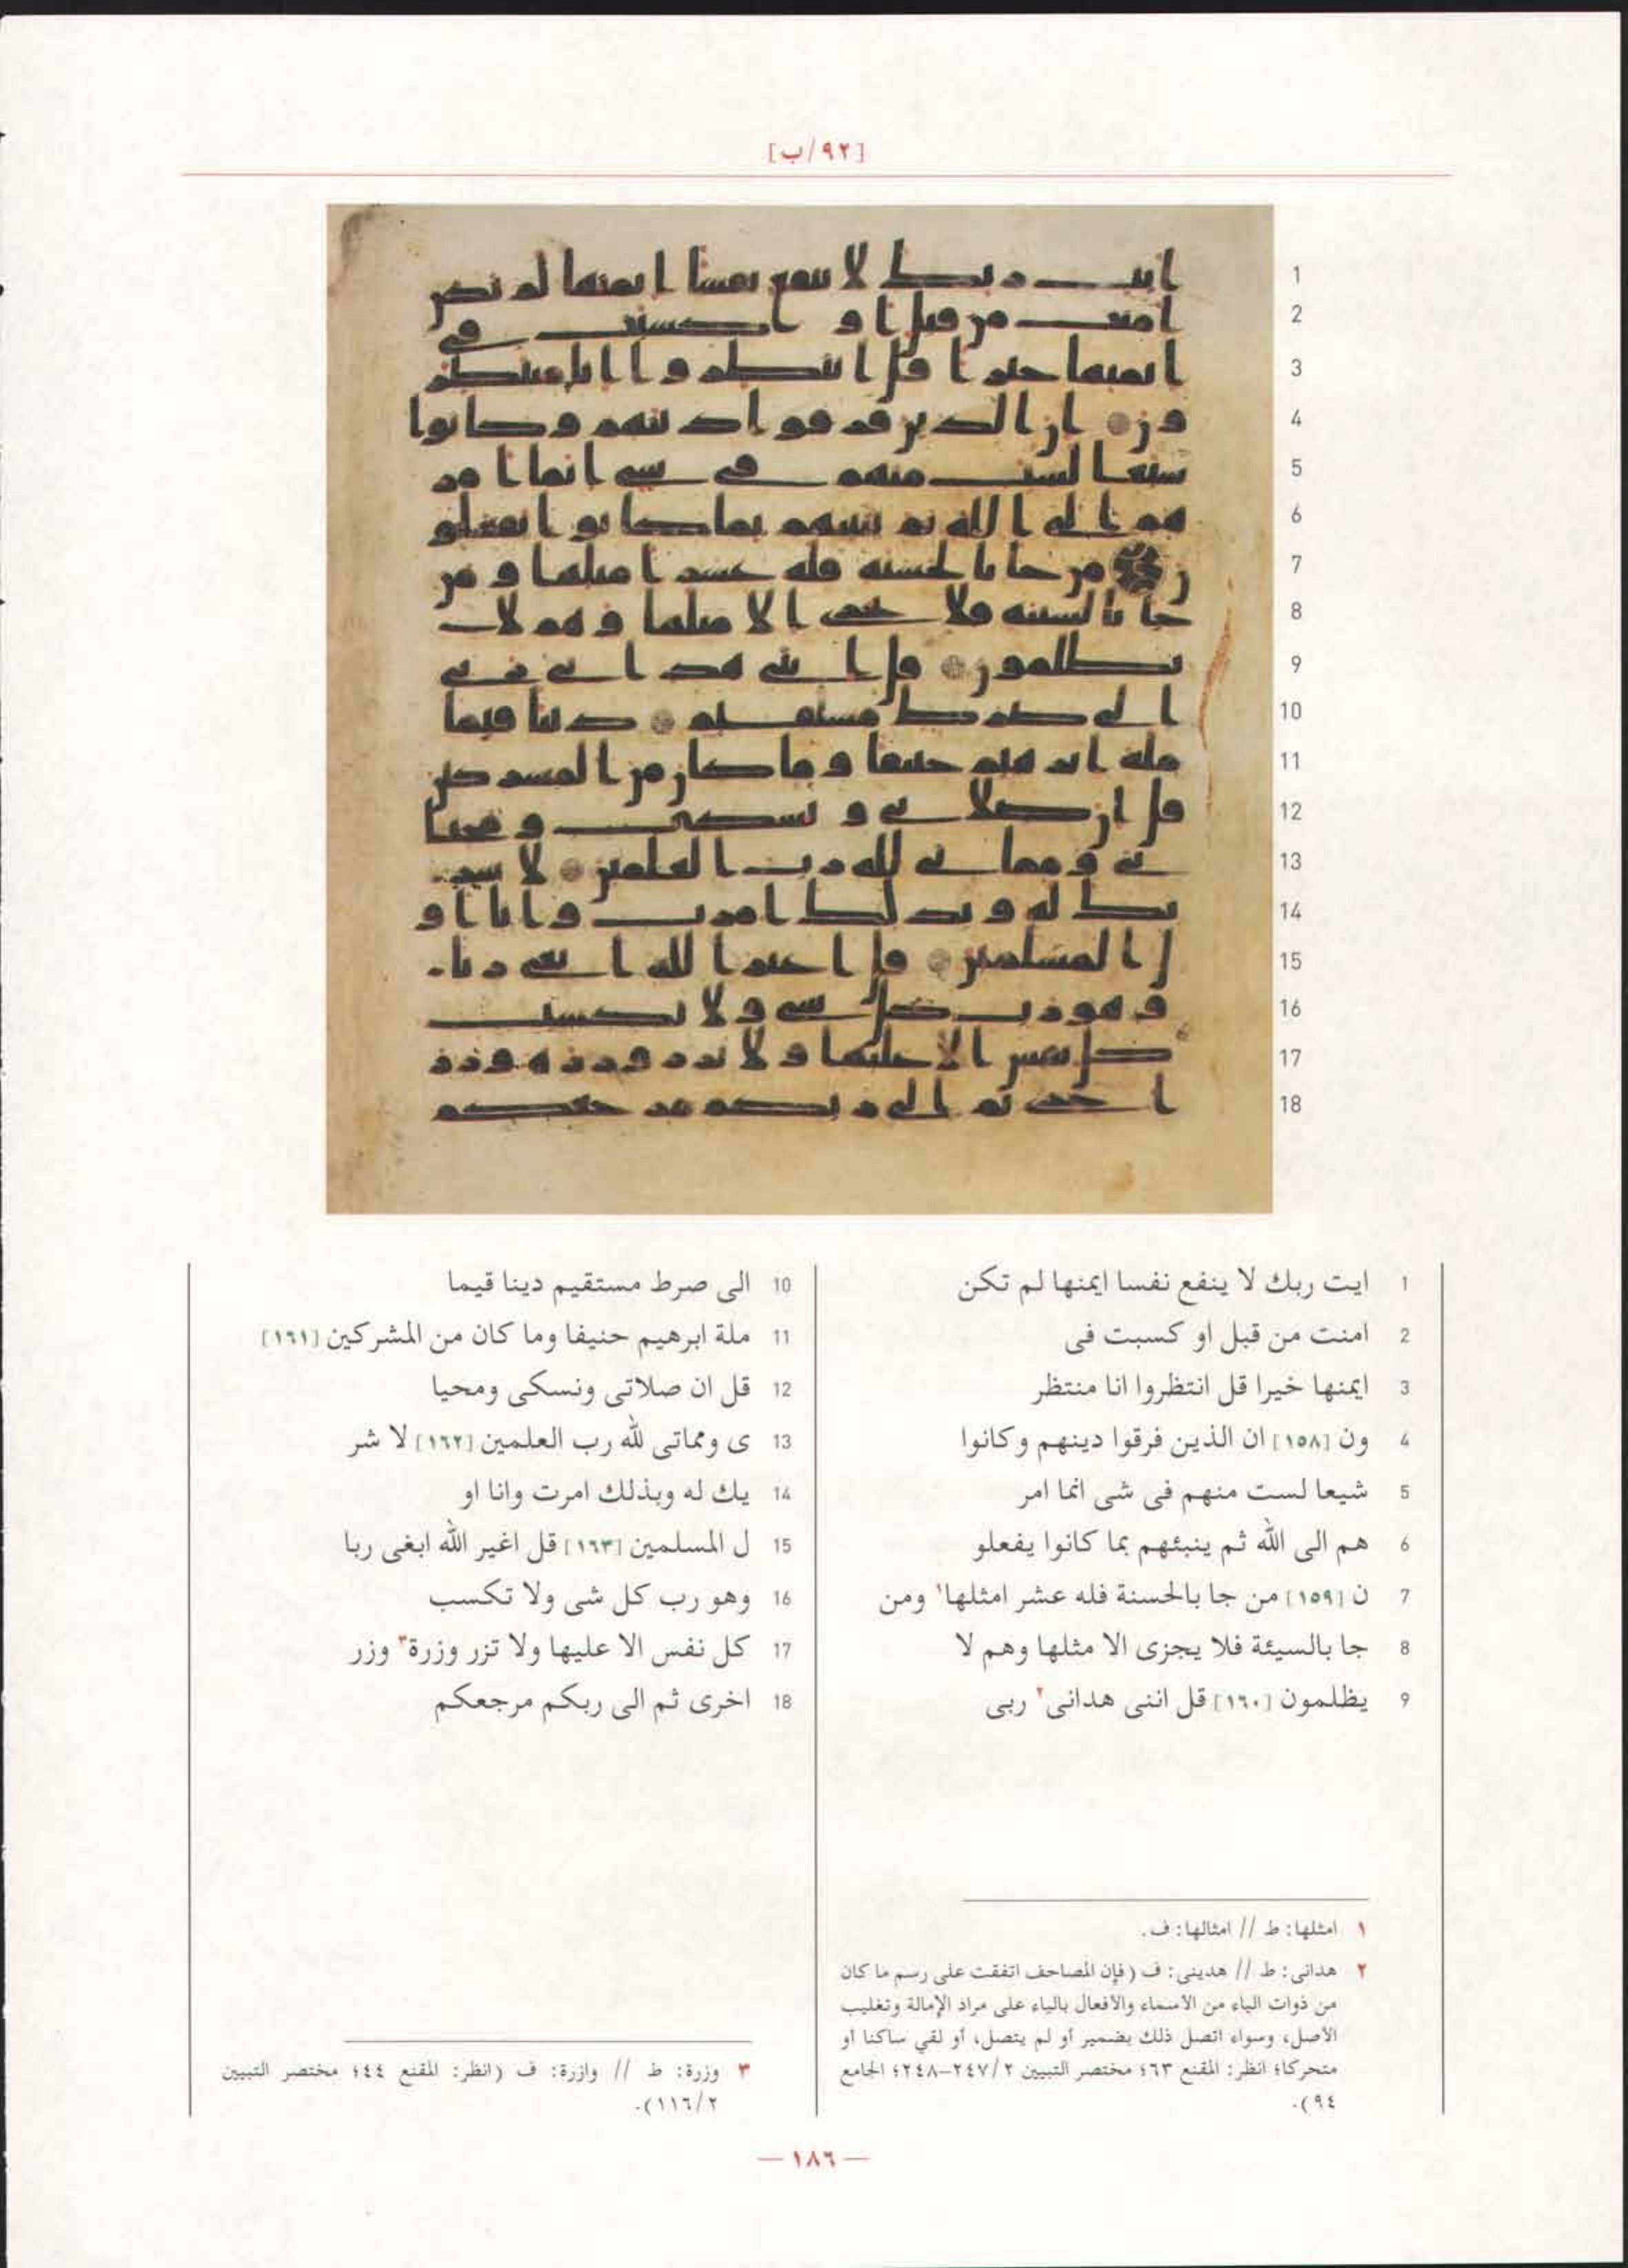 [٩٢/ب]
1 ايت ربك لا ينفع نفسا ايمنها لم تكن
2 امنت من قبل او كسبت فى
3 ايمنها خيرا قل انتظروا انا منتظر
4 ون [١٥٨] ان الذين فرقوا دينهم وكانوا
5 شيعا لست منهم فى شى انما امر
6 هم الى الله ثم ينبئهم بما كانوا يفعلو
7 ن [١٥٩] من جا بالحسنة فله عشر امثلها١ ومن
8 جا بالسيئة فلا يجزى الا مثلها وهم لا
9 يظلمون [١٦٠] قل اننى هدانى٢ ربى
10 الى صرط مستقيم دينا قيما
11 ملة ابرهيم حنيفا وما كان من المشركين [١٦١]
12 قل ان صلاتى ونسكى ومحيا
13 ى ومماتى لله رب العلمين [١٦٢] لا شر
14 يك له وبذلك امرت وانا او
15 ل المسلمين [١٦٣] قل اغير الله ابغى ربا
16 وهو رب كل شى ولا تكسب
17 كل نفس الا عليها ولا تزر وزرة٣ وزر
18 اخرى ثم الى ربكم مرجعكم
١ امثلها: ط // امثالها: ف.
٢ هدانى: ط // هدينى: ف (فإن المصاحف اتفقت على رسم ما كان
من ذوات الياء من الأسماء والأفعال بالياء على مراد الإمالة وتغليب
الأصل، وسواء اتصل ذلك بضمير أو لم يتصل، أو لقي ساكنا أو
متحركا؛ انظر: المقنع ٦٣؛ مختصر التبيين ٢/ ٢٤٧–٢٤٨؛ الجامع
٩٤).
٣ وزرة: ط // وازرة: ف (انظر: المقنع ٤٤؛ مختصر التبيين
٢/ ١١٦).
— ١٨٦ —